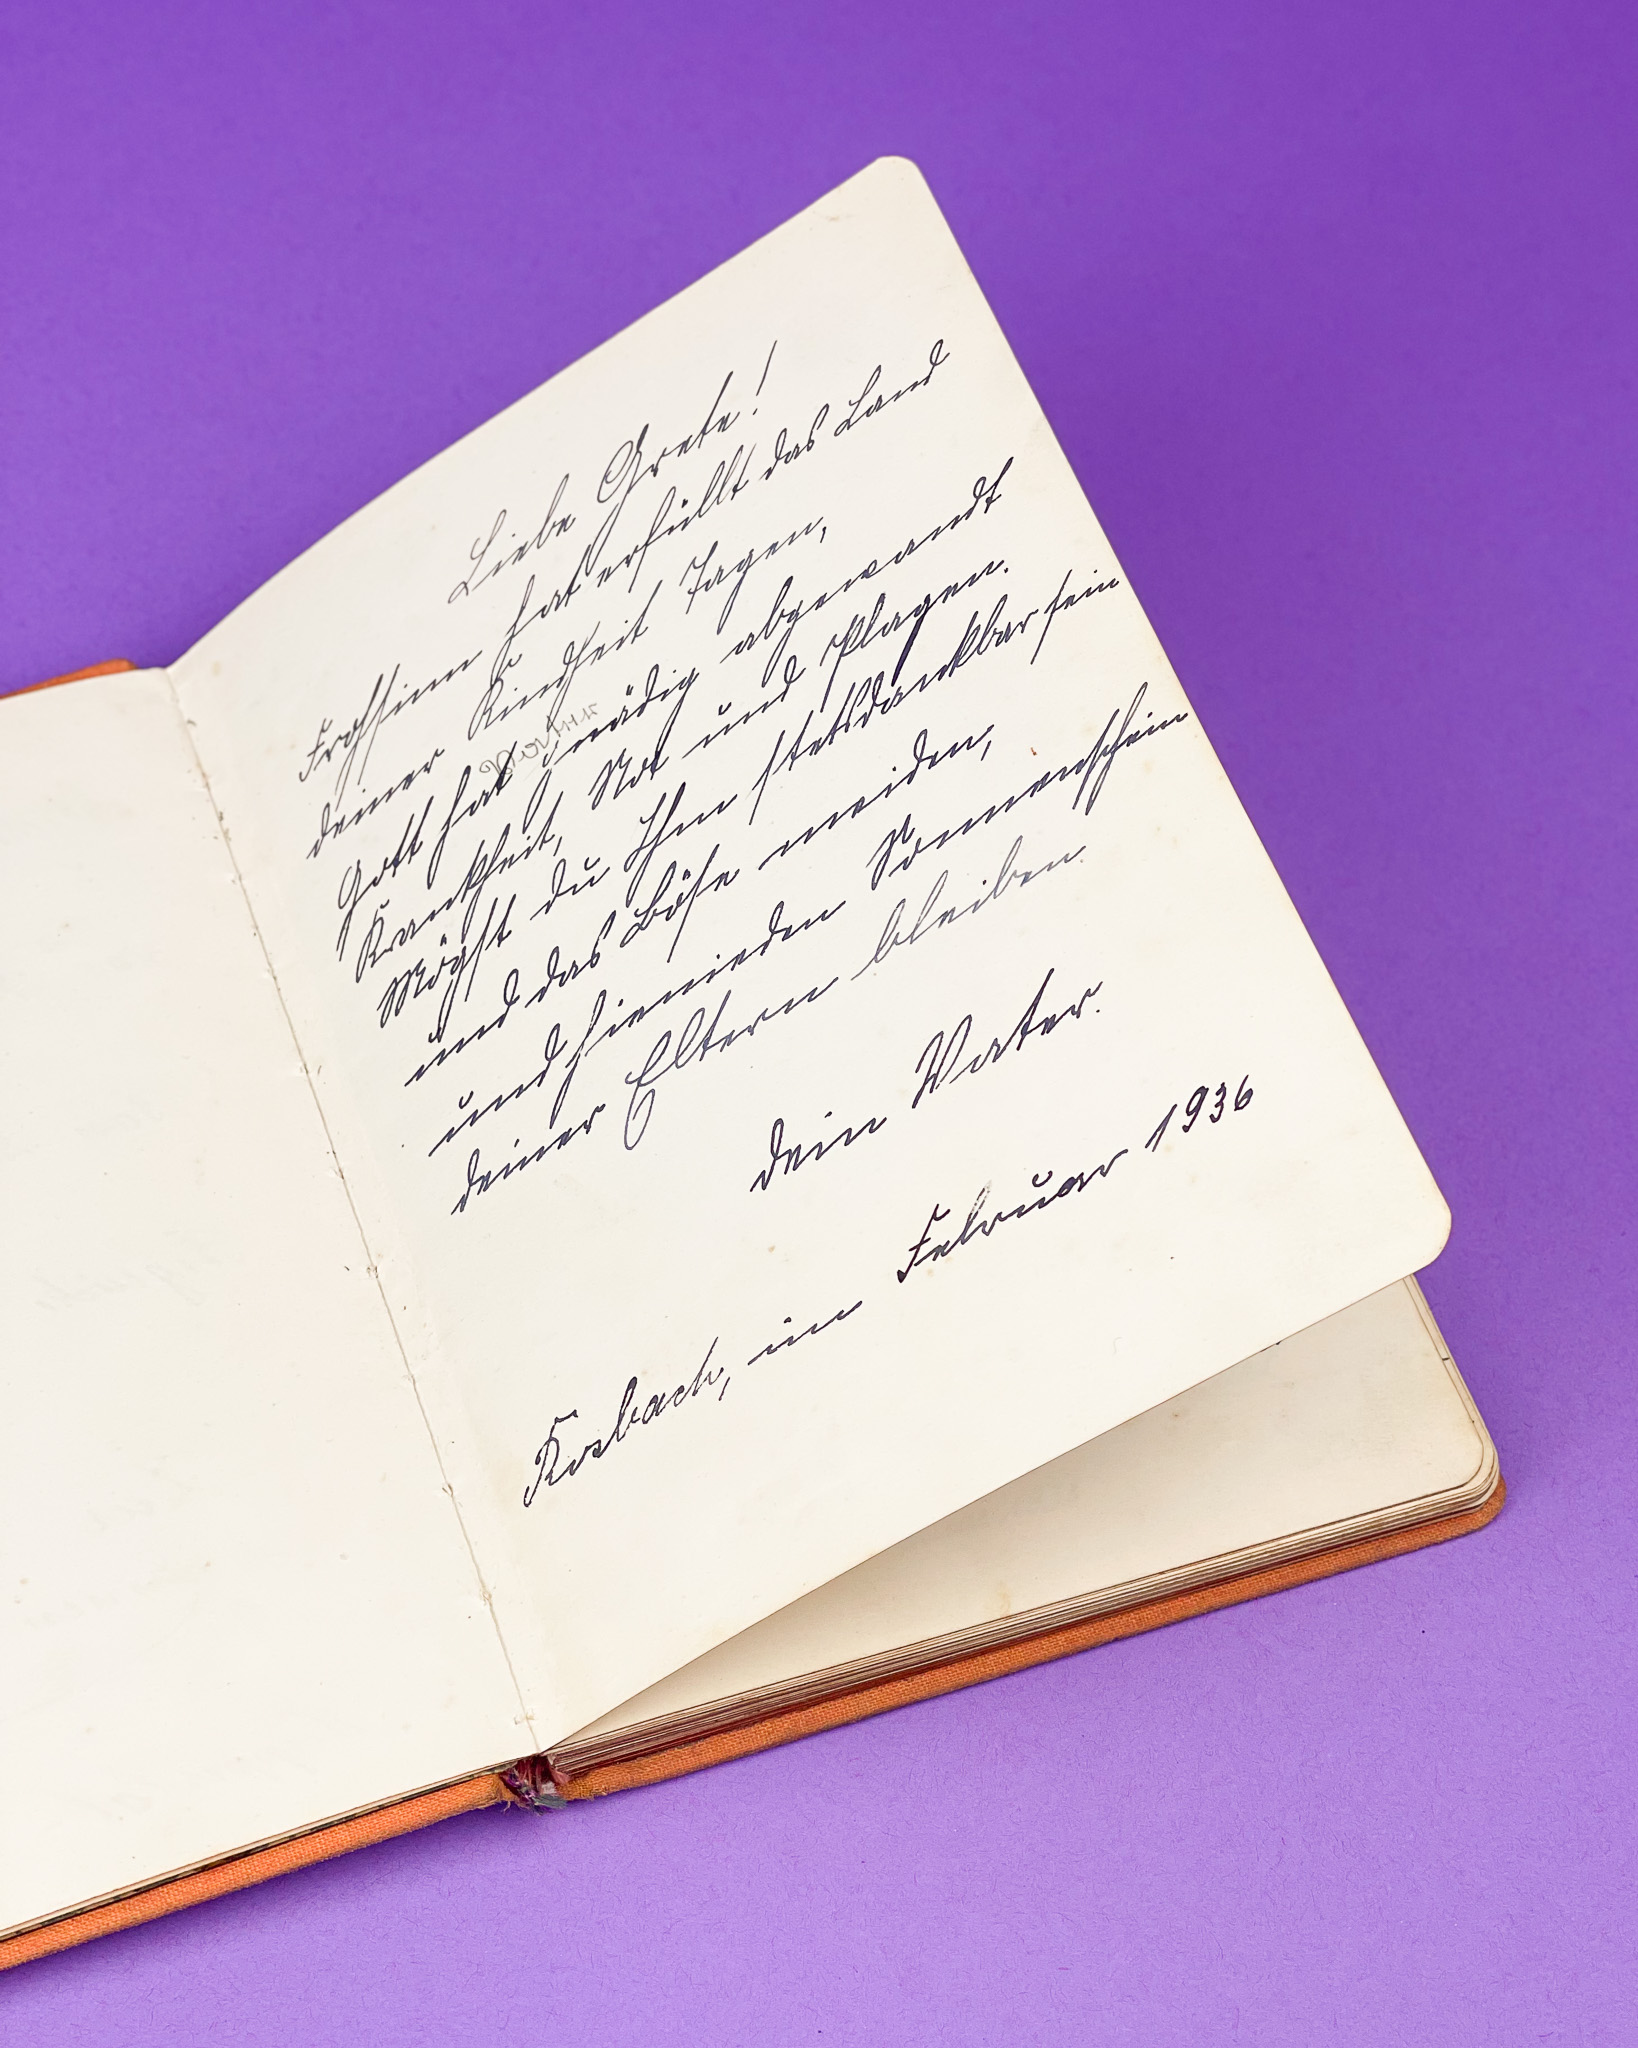 Liebe Grete!
Frohsinn hat erfüllt das Land
deiner Kindheit Tagen,
Gott hat gnädig abgewandt
Krankheit, Not und Plagen.
Mögst du Ihm stets dankbar sein
und das Böse meiden,
und hienieden Sonnenschein
deiner Eltern bleiben.
dein Vater.
Kosbach, im Februar 1936